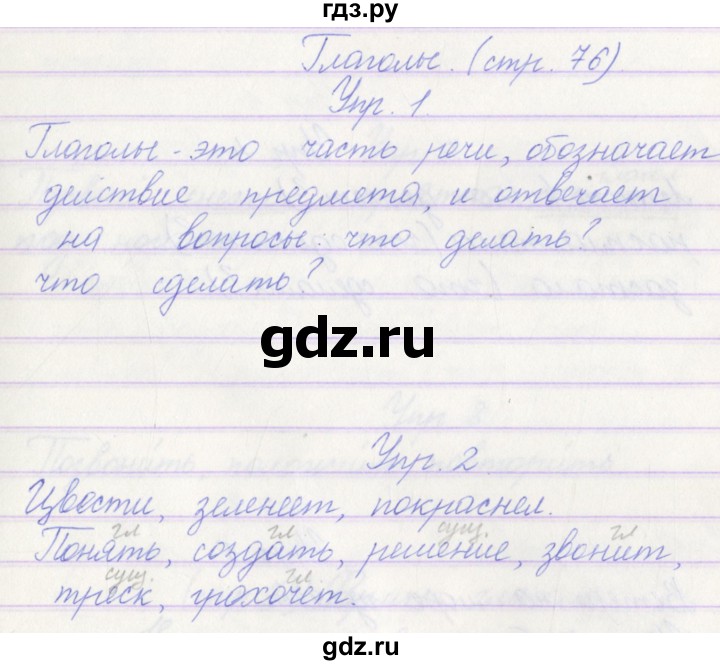 гдз.ру
Глаголы. (стр. 76)
Упр. 1
Глаголы - это часть речи, обозначает
действие предмета, и отвечает
на вопросы: что делать?
что сделать?
gdz.ru
Упр. 2
Цвести, зеленеет, покраснел.
гл гл сущ. гл
Понять, создать, решение, звонит,
сущ. гл.
треск, грохочет.
gdz.ru